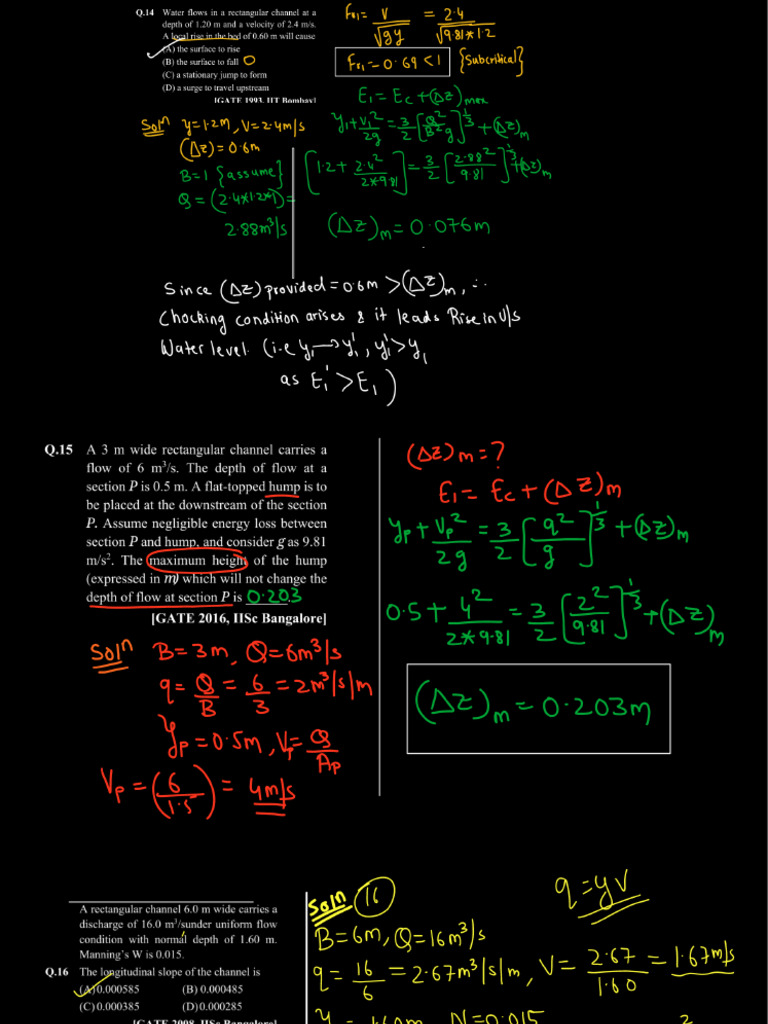 Q.14 Water flows in a rectangular channel at a
depth of 1.20 m and a velocity of 2.4 m/s.
A local rise in the bed of 0.60 m will cause
(A) the surface to rise
(B) the surface to fall
(C) a stationary jump to form
(D) a surge to travel upstream
[GATE 1993, IIT Bombay]
Fr1 = V/√gy = 2.4/√9.81*1.2
Fr1 = 0.69 < 1 {Subcritical}
Soln y=1.2M, V=2.4m/s
(Δz)=0.6m
B=1 {assume}
Q = (2.4*1.2*1) =
2.88m³/s
E1 = Ec + (Δz)max
y1 + V1²/2g = 3/2 [Q²/B²g]^1/3 + (Δz)m
[1.2 + 2.4²/2*9.81] = 3/2 [2.88²/9.81]^1/3 + (Δz)m
(Δz)m = 0.076m
Since (Δz) provided = 0.6m > (Δz)m, ∴
Chocking condition arises & it leads Rise in U/s
Water level. (i.e y1 → y1', y1' > y1
as E1' > E1)
Q.15 A 3 m wide rectangular channel carries a
flow of 6 m³/s. The depth of flow at a
section P is 0.5 m. A flat-topped hump is to
be placed at the downstream of the section
P. Assume negligible energy loss between
section P and hump, and consider g as 9.81
m/s². The maximum height of the hump
(expressed in m) which will not change the
depth of flow at section P is 0.203
[GATE 2016, IISc Bangalore]
Soln B=3m, Q=6m³/s
q = Q/B = 6/3 = 2m³/s/m
yp = 0.5m, Vp = Q/Ap
Vp = (6/1.5) = 4m/s
(Δz)m = ?
E1 = Ec + (Δz)m
yp + Vp²/2g = 3/2 [q²/g]^1/3 + (Δz)m
0.5 + 4²/2*9.81 = 3/2 [2²/9.81]^1/3 + (Δz)m
(Δz)m = 0.203m
A rectangular channel 6.0 m wide carries a
discharge of 16.0 m³/sunder uniform flow
condition with normal depth of 1.60 m.
Manning's W is 0.015.
Q.16 The longitudinal slope of the channel is
(A) 0.000585 (B) 0.000485
(C) 0.000385 (D) 0.000285
[GATE 2008, IISc Bangalore]
Soln 16
q = yv
B=6m, Q=16m³/s
q = 16/6 = 2.67m³/s/m, V = 2.67/1.60 = 1.67m/s